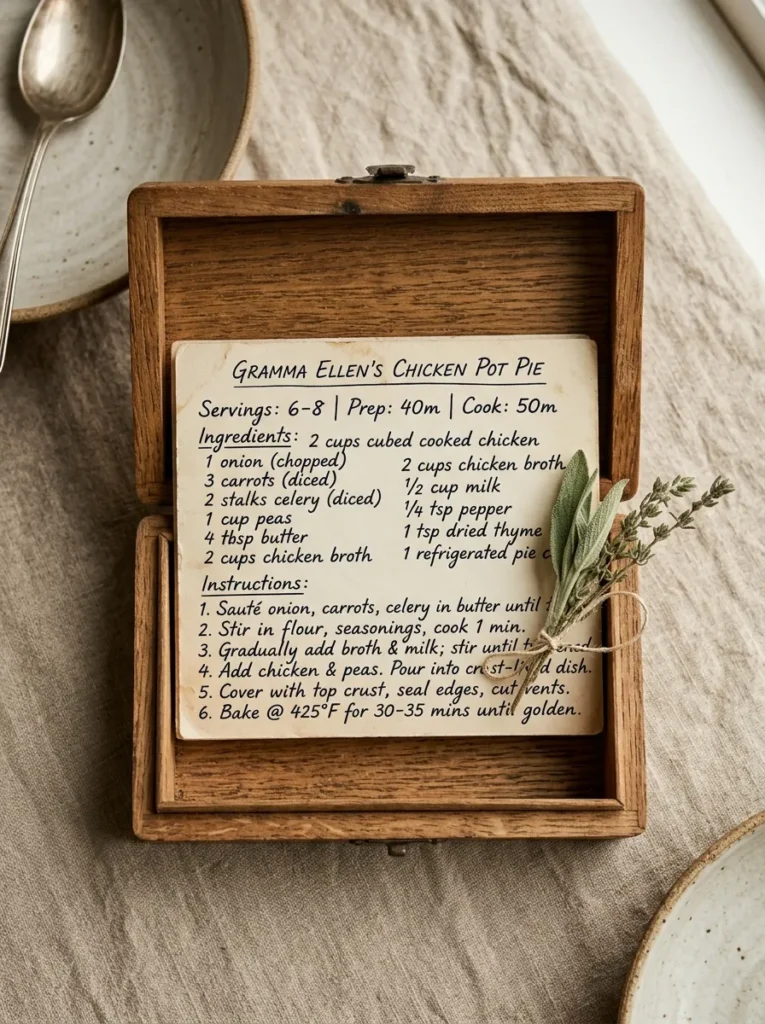 GRAMMA ELLEN'S CHICKEN POT PIE
Servings: 6-8 | Prep: 40m | Cook: 50m
Ingredients: 2 cups cubed cooked chicken
1 onion (chopped)
3 carrots (diced)
2 stalks celery (diced)
1 cup peas
4 tbsp butter
2 cups chicken broth
2 cups chicken broth
1/2 cup milk
1/4 tsp pepper
1 tsp dried thyme
1 refrigerated pie
Instructions:
1. Sauté onion, carrots, celery in butter until
2. Stir in flour, seasonings, cook 1 min.
3. Gradually add broth & milk; stir until
4. Add chicken & peas. Pour into dish.
5. Cover with top crust, seal edges, cut vents.
6. Bake @ 425°F for 30-35 mins until golden.